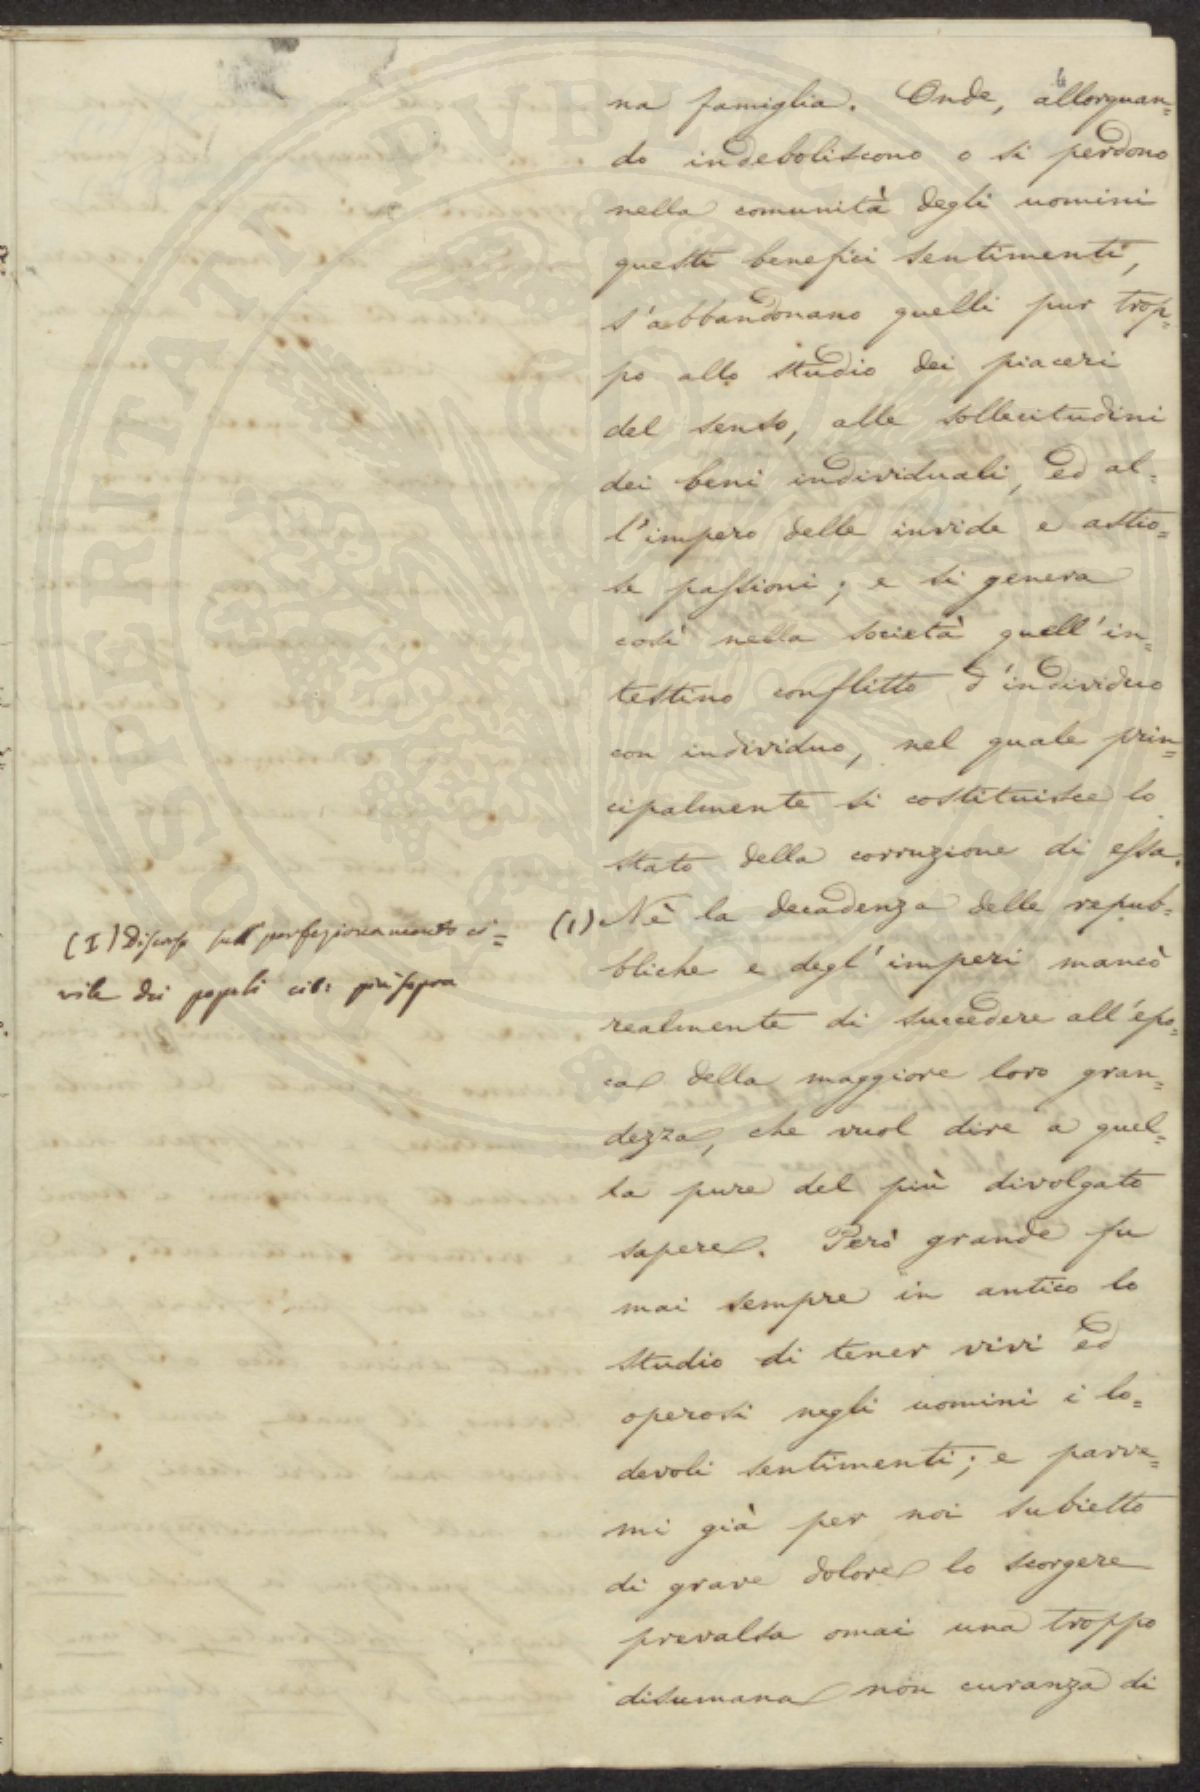 6
na famiglia. Onde, allorquan=
do indeboliscono o si perdono
nella comunità degli uomini
questi benefici sentimenti,
s'abbandonano quelli pur trop=
po allo studio dei piaceri
del senso, alle sollecitudini
dei beni individuali, ed al=
l'impero delle invide e astio=
se passioni; e si genera
così nella società quell'in=
testino conflitto d'individuo
con individuo, nel quale prin=
cipalmente si costituisce lo
stato della corruzione di essa.
(1) Nè la decadenza delle repub=
bliche e degl'imperi mancò
realmente di succedere all'epo=
ca della maggiore loro gran=
dezza, che vuol dire a quel=
la pure del più divolgato
sapere. Però grande fu
mai sempre in antico lo
studio di tener vivi ed
operosi negli uomini i lo=
devoli sentimenti; e parve=
mi già per noi subietto
di grave dolore lo scorgere
prevalsa omai una troppo
disumana non curanza di
(I) Discorso sull'perfezionamento ci=
vile dei popoli cit: più sopra
SOSPERITATI PUBLICAE